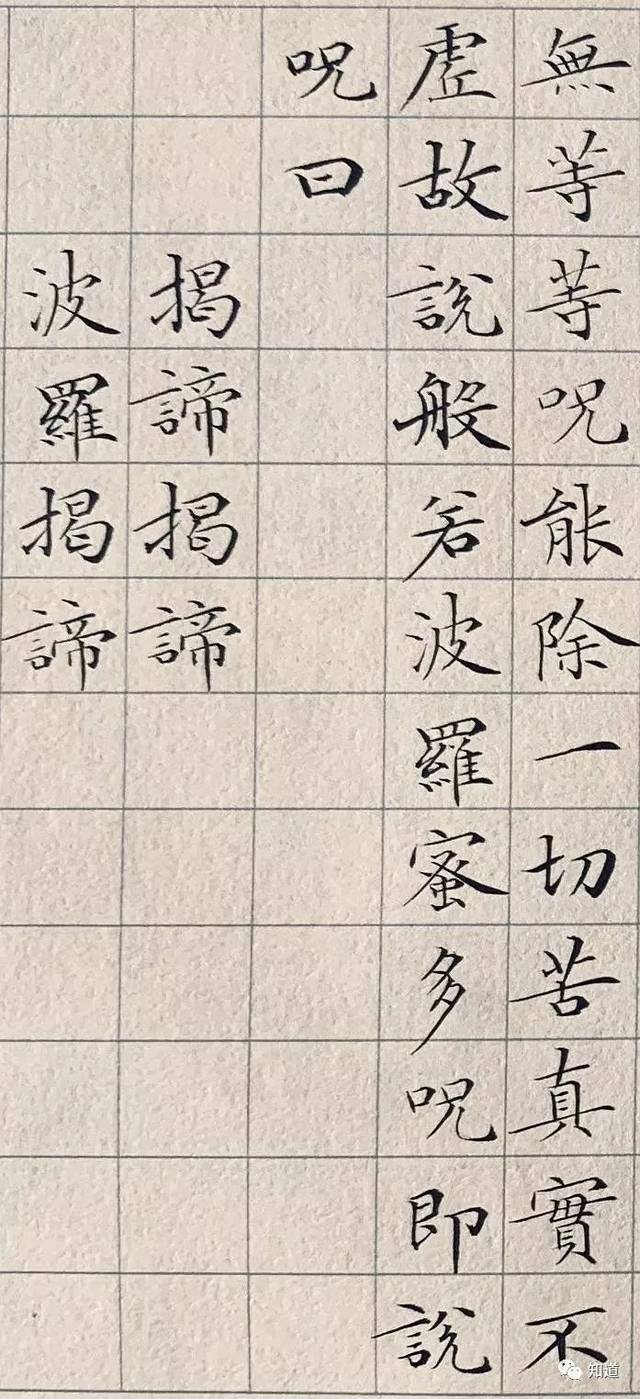 無等等呪能除一切苦真實不
虛故說般若波羅蜜多呪即說
呪曰
揭諦揭諦
波羅揭諦
知道